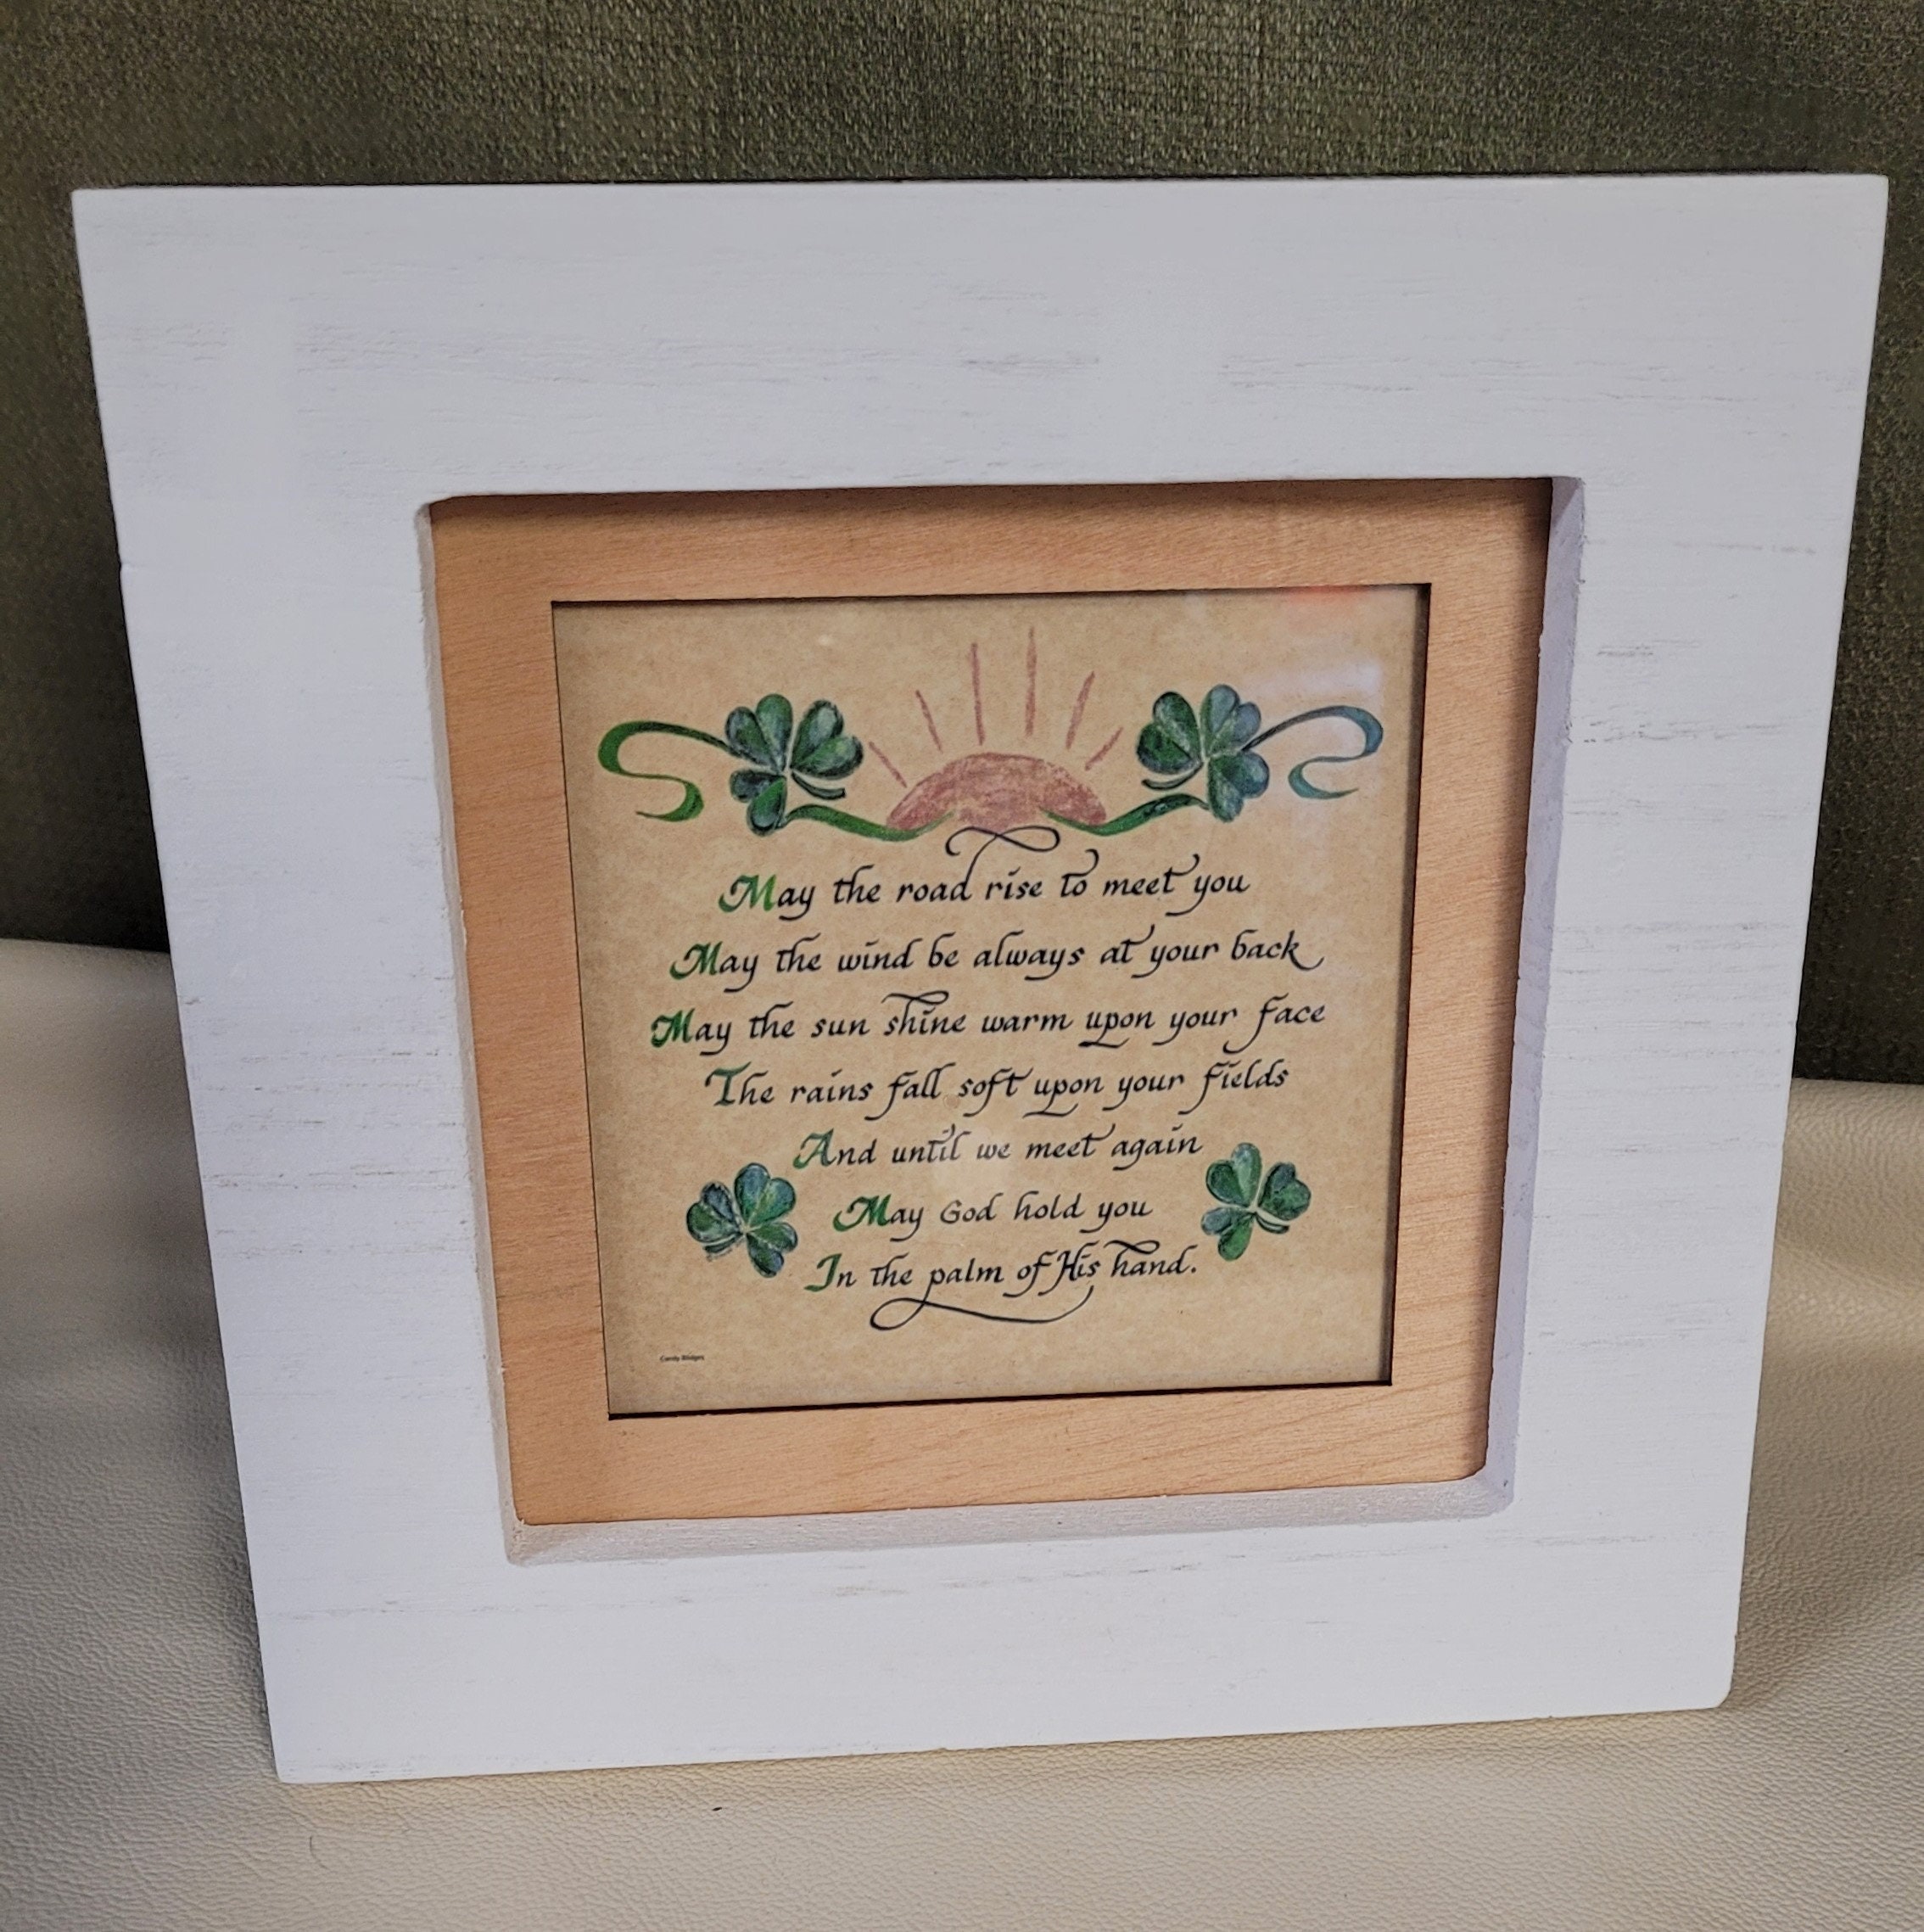 May the road rise to meet you
May the wind be always at your back
May the sun shine warm upon your face
The rains fall soft upon your fields
And until we meet again
May God hold you
In the palm of His hand.
Candy Bridges